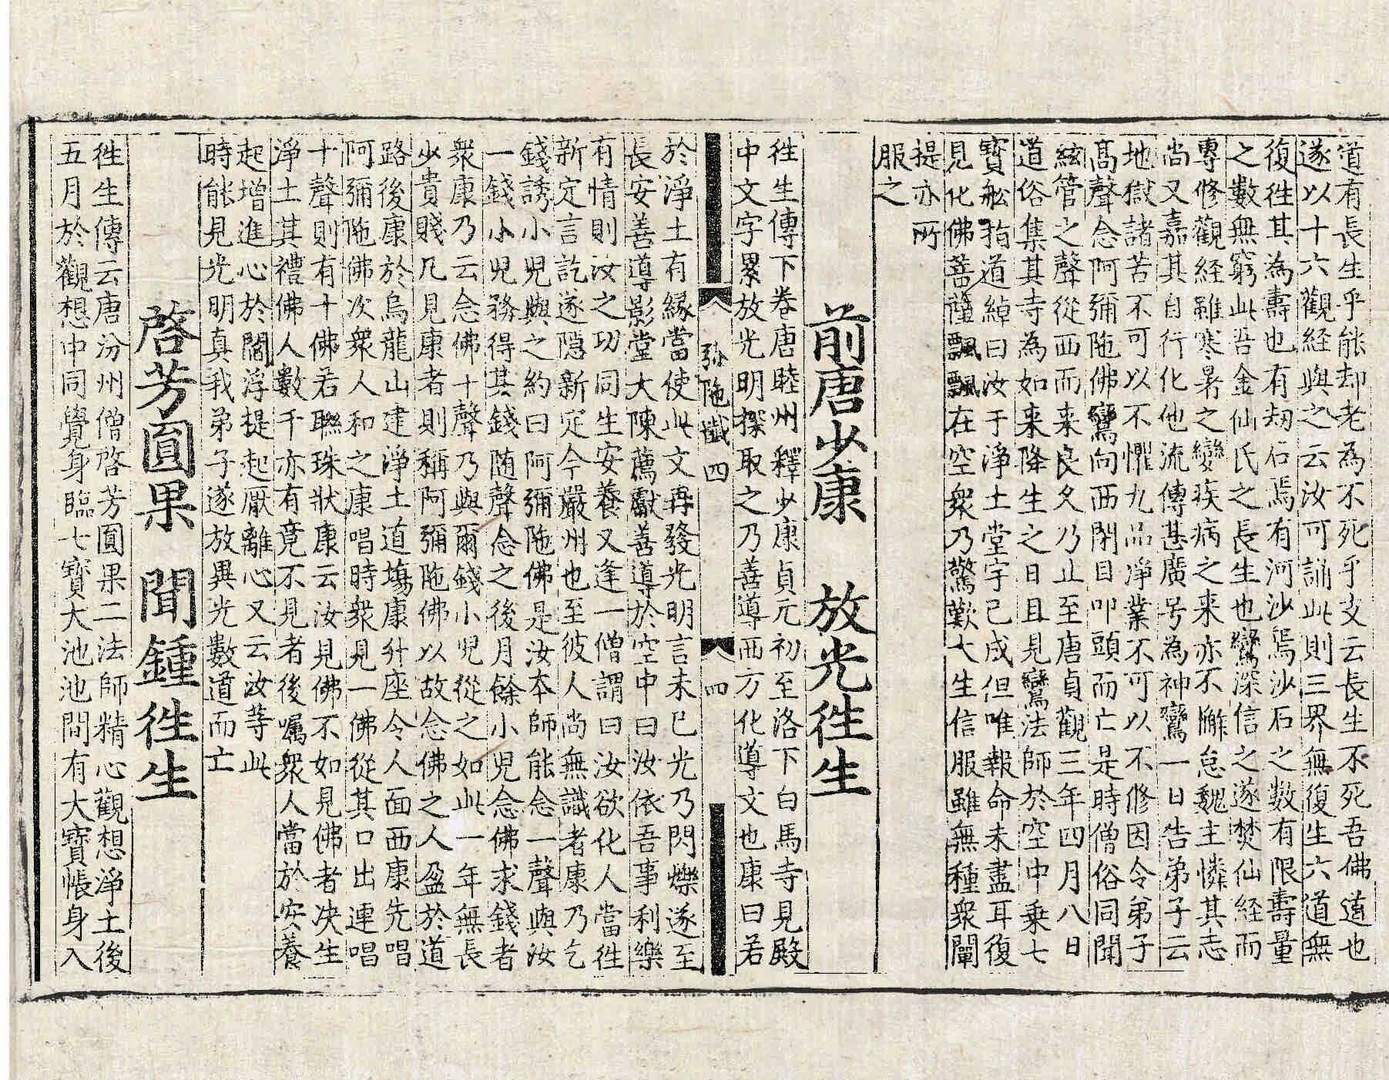 道有長生乎能却老為不死乎支云長生不死吾佛道也
遂以十六觀経與之云汝可誦此則三界無復生六道無
復徃其為壽也有劫石焉有河沙焉沙石之數有限壽量
之數無窮此吾金仙氏之長生也鸞深信之遂焚仙経而
專修觀経雖寒暑之變疾病之来亦不懈怠魏主憐其志
尚又嘉其自行化他流傳甚廣号為神鸞一日告弟子云
地獄諸苦不可以不懼九品凈業不可以不修因令弟子
髙聲念阿彌陁佛鸞向西閉目叩頭而亡是時僧俗同聞
絃管之聲從西而来良久乃止至唐貞觀三年四月八日
道俗集其寺為如来降生之日且見鸞法師於空中乗七
寳舩指道綽曰汝于淨土堂宇已成但唯報命未盡耳復
見化佛菩薩飄飄在空衆乃驚歎大生信服雖無種衆闡
提亦所
服之
前唐少康　放光徃生
徃生傳下卷唐睦州釋少康貞元初至洛下白馬寺見殿
中文字累放光明探取之乃善導西方化導文也康曰若
弥陁懺四　四
於淨土有緣當使此文再發光明言未已光乃閃爍遂至
長安善導影堂大陳薦獻善導於空中曰汝依吾事利樂
有情則汝之功同生安養又逢一僧謂曰汝欲化人當徃
新定言訖遂隠新定今嚴州也至彼人尚無識者康乃乞
錢誘小児與之約曰阿彌陁佛是汝本師能念一聲與汝
一錢小児務得其錢随聲念之後月餘小児念佛求錢者
衆康乃云念佛十聲乃與爾錢小児從之如此一年無長
少貴賤凢見康者則稱阿彌陁佛以故念佛之人盈於道
路後康於烏龍山建淨土道塲康升座令人面西康先唱
阿彌陁佛次衆人和之康唱時衆見一佛從其口出連唱
十聲則有十佛若聯珠狀康云汝見佛不如見佛者决生
淨土其禮佛人數千亦有竟不見者後囑衆人當於安養
起增進心於閻浮提起厭離心又云汝等此
時能見光明真我弟子遂放異光數道而亡
啓芳圓果　聞鍾徃生
徃生傳云唐汾州僧啓芳圓果二法師精心觀想淨土後
五月於觀想中同覺身臨七寳大池池間有大寳帳身入